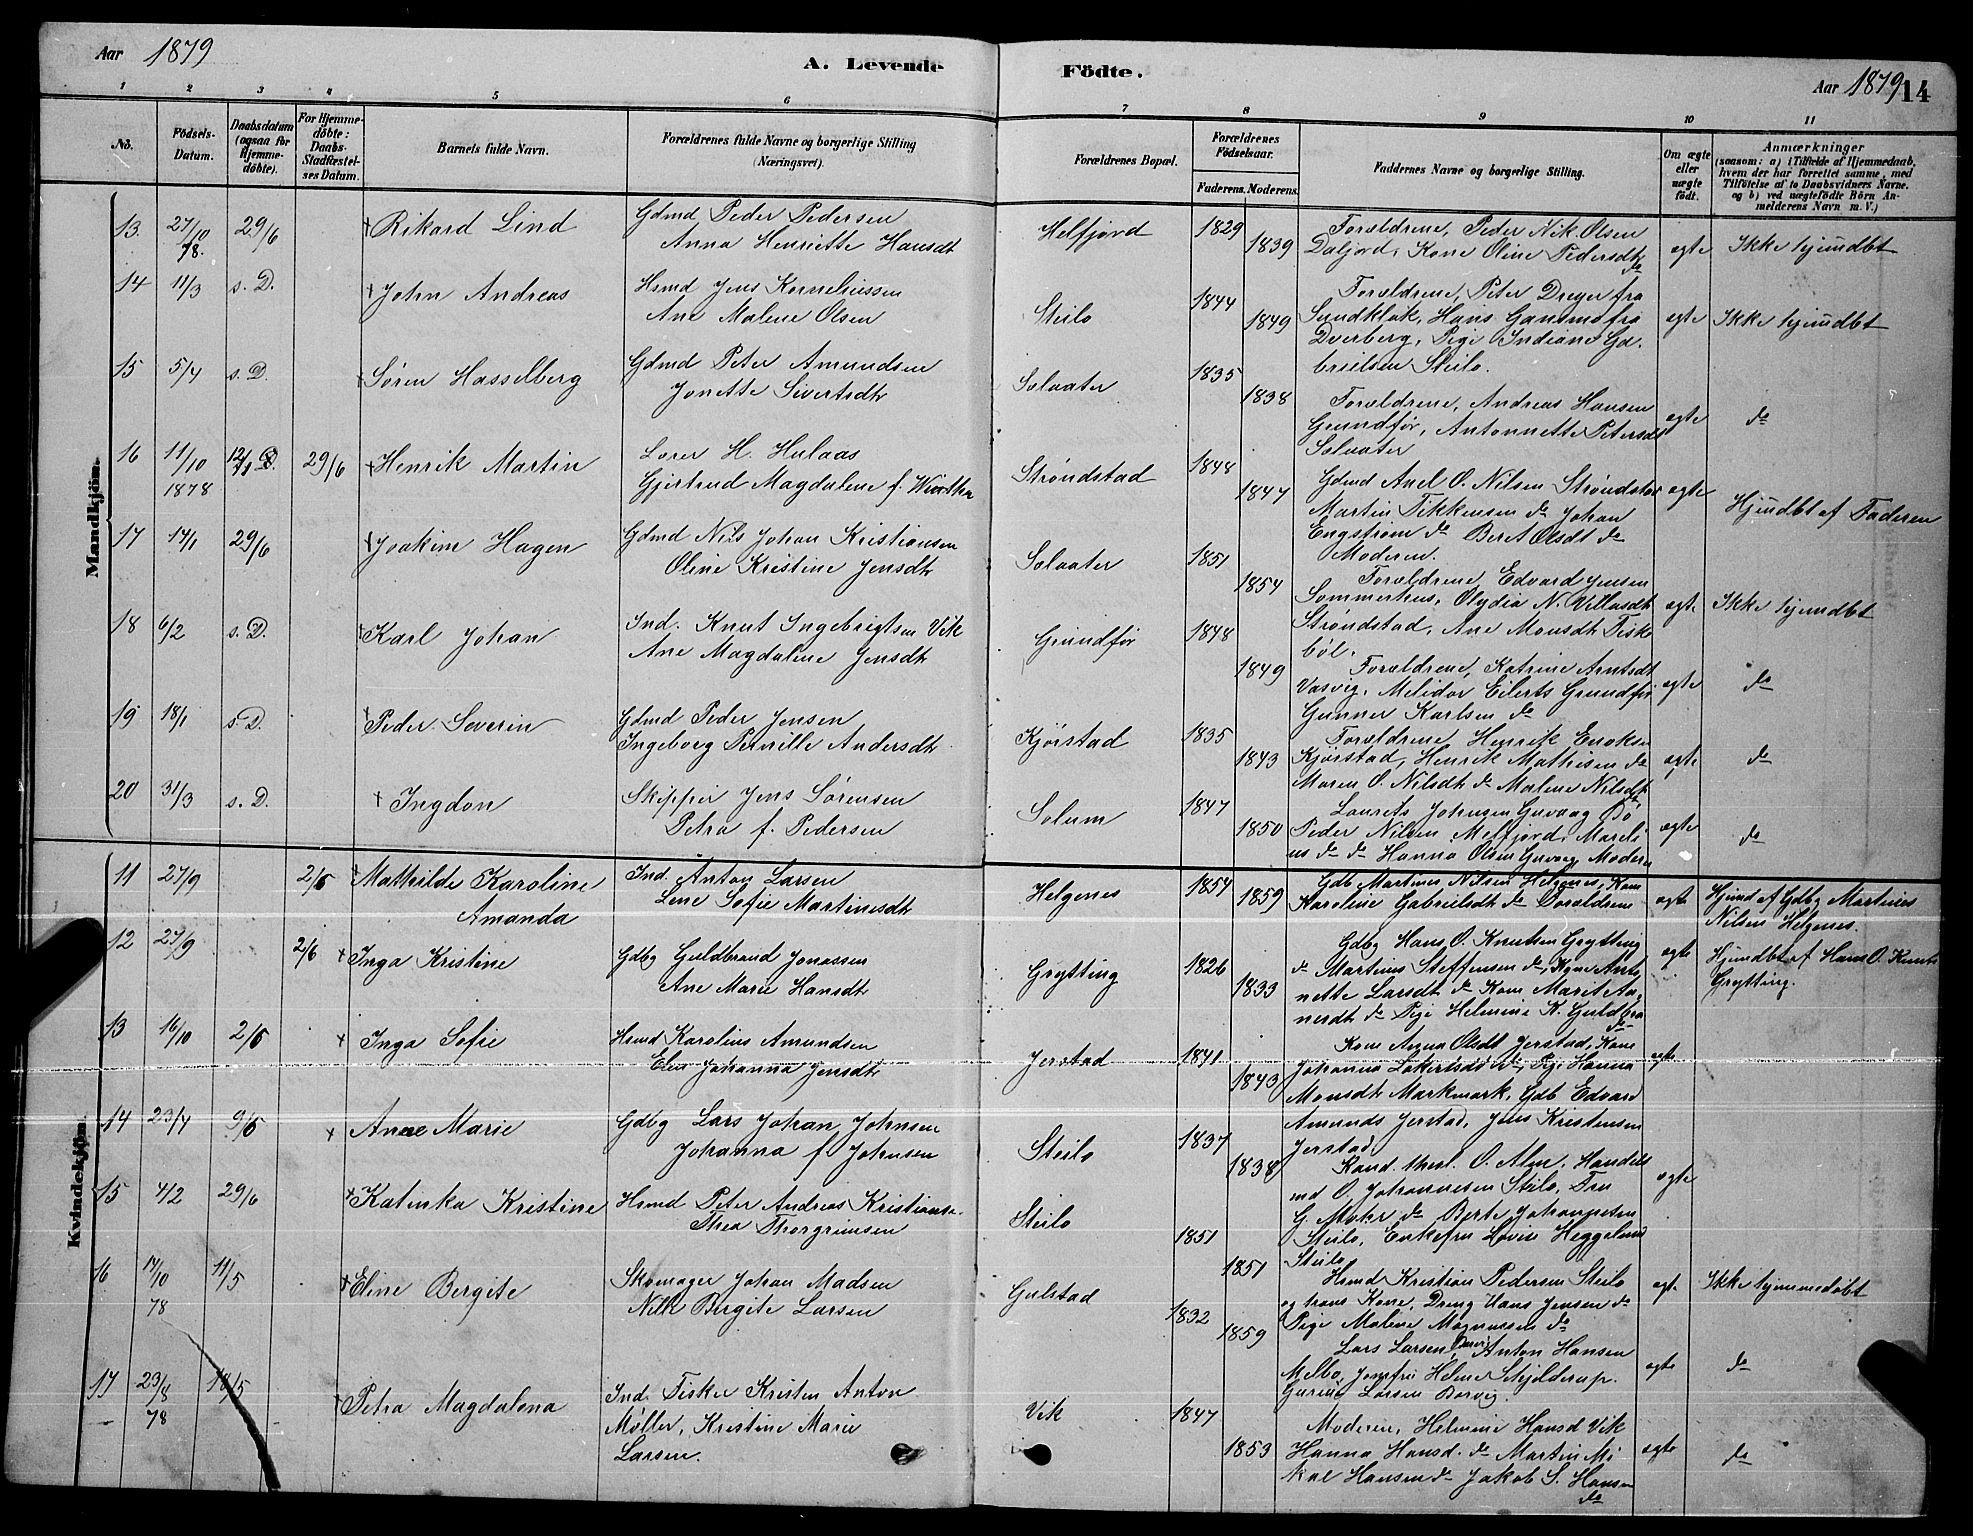 Aar 1879
A. Levende
Födte.
Aar 1879
14
1 2 3 4 5 6 7 8 9 10 11
No.
Födsels-Datum.
Daabsdatum (ogsaa for Hjemme-döbte).
For Hjemme-döbte: Daabs-Stadfæstel-ses Datum.
Barnets fulde Navn.
Forældrenes fulde Navne og borgerlige Stilling (Næringsvei).
Forældrenes Bopæl.
Forældrenes Födselsaar.
Faderens. Moderens.
Faddernes Navne og borgerlige Stilling.
Om ægte eller uægte födt.
Anmærkninger
(saasom: a) i Tilfælde af Hjemmedaab,
hvem der har forrettet samme, med
Tilföielse af to Daabsvidners Navne.
og b) ved uægtefödte Börn An-
melderens Navn m. V.)
Mandkjön.
13. 27/10 78. 29/6 Rikard Lind
Gdmd Peder Pedersen
Anna Henriette Hansdt
Helfjord 1829 1839
Forældrene, Peder Nik. Olsen
Daljord, Kone Oline Pedersdt
do
ægte Ikke hjemdbt
14 11/3 s. D. John Andreas
Hsmd Jens Korneliussen
Ane Malene Olsen
Steilo 1844 1849
Forældrene, Peter Dreyer fra
Sundklak, Hans Gansmo fra
Dverberg, Pige Indiane Ga-
brielsen Steilo.
ægte Ikke hjemdbt
15 5/4 s. D. Søren Hasselberg
Gdmd Peter Amundsen
Jonette Sivertsdt
Solvater 1835 1838
Forældrene, Andreas Hansen
Grundfør, Antonnette Petersdt
Solvater
ægte do
16 11/10 1878 29/6 Henrik Martin
Lærer H. Hulaas
Gjertrud Magdalene f. Winther
Strøndstad 1848 1847
Gdmd Axel O. Nilsen Strøndstad
Martin Tikkensen do Johan
Engstrøm do Beret Olsdt do
Moderen.
ægte Hjemdbt af Faderen
17 14/1 29/6 Joakim Hagen
Gdmd Nils Johan Kristiansen
Oline Kristine Jensdt
Solvater 1851 1854
Forældrene, Edvard Jensen
Sommerhus, Olydia N. Villasdt
Strøndstad, Ane Monsdt Fiske
böl.
ægte Ikke hjemdbt
18 6/2 s. D. Karl Johan
Ind. Knut Ingebrigtsen Vik
Ane Magdalene Jensdt
Grundfør 1848 1849
Forældrene, Katrine Arntsdt
Vasvig, Melidor Eilerts Grundfør
Gunner Karlsen do
ægte do
19 18/1 s. D. Peder Severin
Gdmd Peder Jensen
Ingeborg Pernille Andersdt
Kjørstad 1835 1843
Forældrene, Henrik Enoksen
Kjørstad, Henrik Mathisen do
Maren O. Nilsdt do Malene Nilsdt
do
ægte do
20 31/3 s. D. Ingdon
Skipper Jens Sørensen
Petra f. Pedersen
Solum 1847 1850
Laurits Johnsen Guvaag Bø
Peder Nilsen Melfjord, Mareli-
us do do Hanna Olsen Guvaag, Moderen
ægte do
Kvindekjön.
11 27/9 2/6 Mathilde Karoline
Amanda
Ind. Anton Larsen
Lene Sofie Martinusdt
Helgenes 1854 1859
Gdb Martinus Nilsen Helgenes, Kone
Karoline Gabrielsdt do Forældrene
ægte Hjemd af Gdbg Martinus
Nilsen Helgenes.
12 27/9 2/6 Inga Kristine
Gdbg Guldbrand Jonassen
Ane Marie Hansdt
Grytting 1826 1833
Gdbg Hans O. Knutsen Grytting
do Martinus Steffensen do, Kone Anto-
nette Larsdt do Kone Marit Aa-
nersdt do Pige Helmine K. Guldbra
do
ægte Hjemdbt af Hans O. Knuts
Grytting.
13 16/10 2/6 Inga Sofie
Hsmd Karolius Amundsen
Elen Johanna Jensdt
Jerstad 1841 1843
Kone Anna Olsdt Jerstad, Kone
Johanna Lokertsdt do, Pige Hanna
Monsdt Markmark, Gdb Edvard
Amunds Jerstad, Jens Kristensen
Jerstad
ægte
14 23/4 9/6 Anne Marie
Gdbg Lars Johan Johnsen
Johanna f. Johnsen
Steilo 1837 1838
Kand. theol. O. Alm, Handels
md O. Johannesen Steilo, Fru
G. Mohr do Berte Johannesen
Steilo, Enkefru Lovise Heggelund
Steilo
ægte
15 4/2 29/6 Katinka Kristine
Hsmd Peter Andreas Kristianse
Thea Thorgrimsen
Steilo 1851 1851
Hsmd Kristian Pedersen Steilo
og hans Kone, Dreng Hans Jensen do
Pige Malene Magnussen do
ægt.
Ikke hjemmedøbt
16 17/10 78 11/5 Eline Bergite
Skomager Johan Madsen
Nilk Birgite Larsen
Gulstad 1832 1859
Lars Larsen, Anton Hansen
Melbo, Jomfru Helene Stjoldersup.
Gurine Larsen Borvig.
ægte do
17 23/8 78 18/5 Petra Magdalena
Ind. Fisker Kristen Anton
Møller, Kristine Marie
Larsen.
Vik 1847 1853
Moderen, Helmine Hansd Vik
Hanna Hansd. do Martin Mi-
kal Hansen do Jakob S. Hansen
do
ægte do